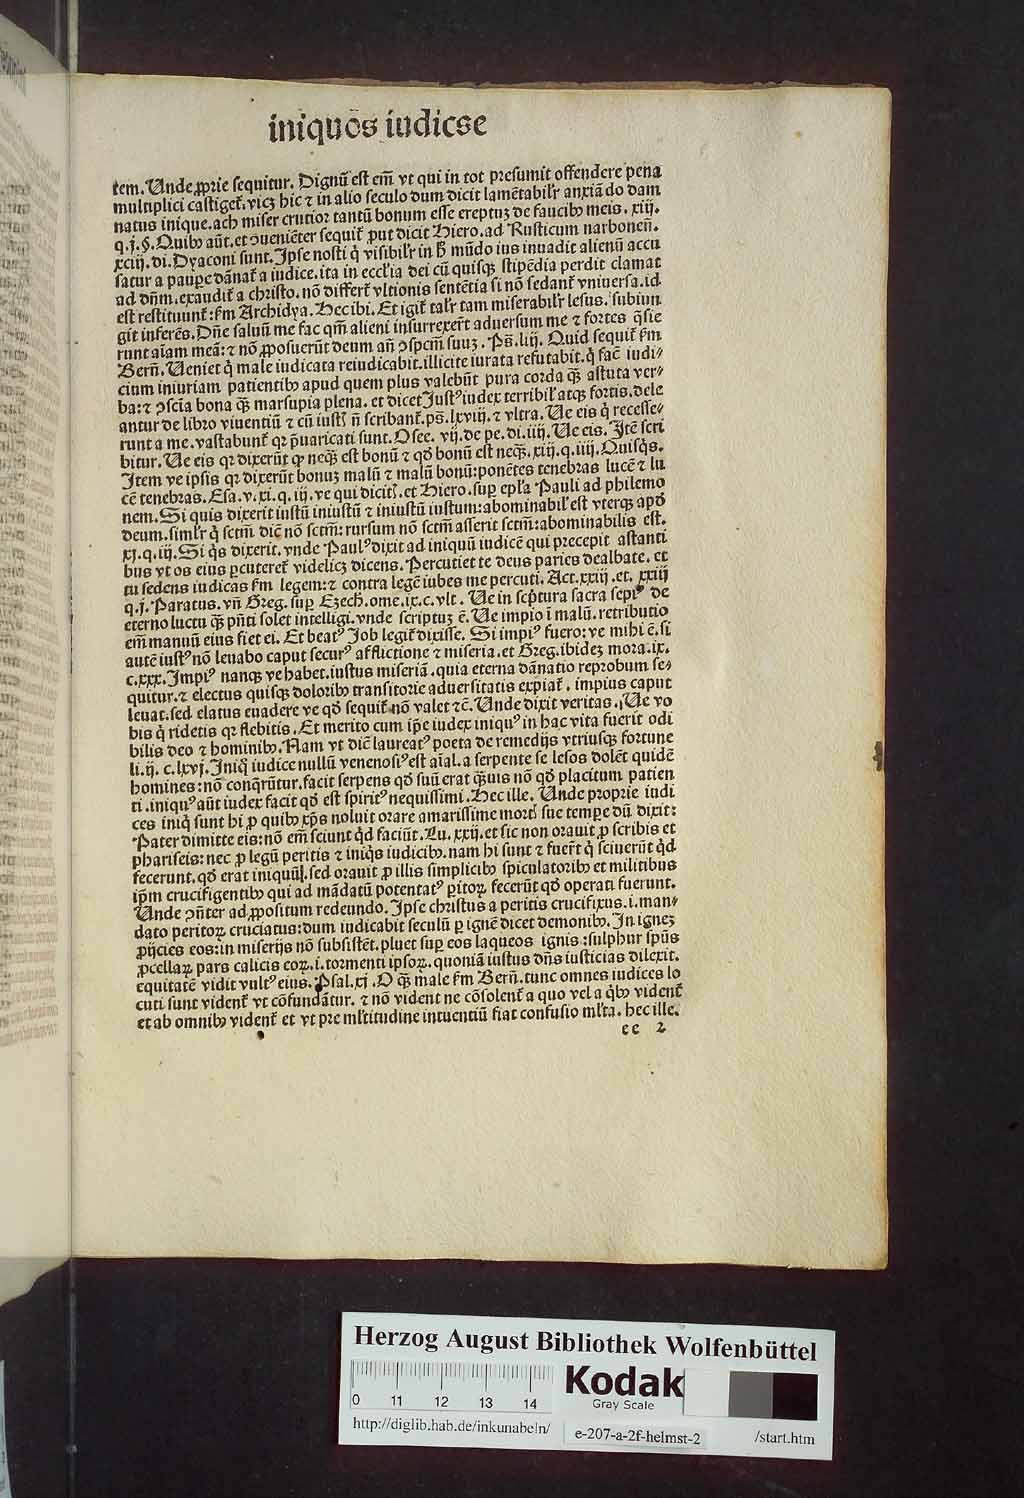 iniquos iudicse
tem. Unde ꝓprie sequitur. Dignū est em̄ vt qui in tot presumit offendere pena
multiplici castiget᷑. vicꝫ hic ⁊ in alio seculo dum dicit lamētabilr̄ anxiā do dam
natus inique. ach miser crucior tantū bonum esse ereptuꝫ de faucibꝰ meis. xiij.
q. j. §. Quibꝰ aūt. et ↄueniēter sequit᷑ ꝓut dicit Hiero. ad Rusticum narboneñ.
xciij. di. Dyaconi sunt. Ipse nosti q̇ visibilr̄ in h̄ mūdo ius inuadit alienū accu
satur a pauꝑe dānat᷑ a iudice. ita in eccl'ia dei cū quisqꝫ stipēdia perdit clamat
ad dn̄m. exaudit᷑ a christo. nō differt᷑ vltionis sentētia si nō sedant᷑ vniuersa. id
est restituunt᷑: fm Archidya. Hec ibi. Et igit᷑ tal'r tam miserabil'r lesus. subiun
git inferēs. Dn̄e saluū me fac qm̄ alieni insurrexer̄t aduersum me ⁊ fortes q̄sie
runt aīam meā: ⁊ nō ꝓposuerūt deum an̄ ↄspcm̄ suuꝫ. Ps̄. liij. Quid sequit᷑ fm
Berñ. Ueniet q̇ male iudicata reiudicabit. illicite iurata refutabit. q̇ faĉ iudi⸗
cium iniuriam patientibꝰ apud quem plus valebūt pura corda qꝫ̄ astuta ver⸗
ba: ⁊ ↄscīa bona qꝫ̄ marsupia plena. et dicet Justꝰ iudex terribil' atqꝫ fortis. dele
antur de libro viuentiū ⁊ cū iustꝭ n̄ scribant᷑. ps̄. lxviij. ⁊ vltra. Ue eis q̇ recesse⸗
runt a me. vastabunt᷑ qr p̄uaricati sunt. Osee. vij. de pe. di. iiij. Ue eis. Itē scri
bitur. Ue eis qr dixerūt ꝙ neqꝫ est bonū ⁊ qd̄ bonū est neqꝫ. xiij. q. iiij. Quisq̇s.
Item ve ipsis qr dixerūt bonuꝫ malū ⁊ malū bonū: ponētes tenebras lucē ⁊ lu
cē tenebras. Esa. v. xi. q. iij. ve qui dicitꝭ. et Hiero. suꝑ epl'a Pauli ad philemo
nem. Si quis dixerit iustū iniustū ⁊ iniustū iustum: abominabil' est vterqꝫ apd̄
deum. simil'r q̇ sctm̄ diĉ nō sctm̄: rursum nō sctm̄ asserit sctm̄: abominabilis est.
xj. q. iij. Si q̇s dixerit. vnde Paulꝰ dixit ad iniquū iudicē qui precepit astanti
bus vt os eius ꝑcuteret᷑ videlicꝫ dicens. Percutiet te deus paries dealbate. et
tu sedens iudicas fm legem: ⁊ contra legē iubes me percuti. Act. xxiij. et. xxiij
q. j. Paratus. vn̄ Greg. suꝑ Ezech. ome. ix. c. vlt. Ue in scp̄tura sacra sepiꝰ de
eterno luctu qꝫ̄ pn̄ti solet intelligi. vnde scriptuꝫ ē. Ue impio ī malū. retributio
em̄ manuū eius fiet ei. Et beatꝰ Job legit᷑ dixisse. Si impiꝰ fuero: ve mihi ē. si
autē iustꝰ nō leuabo caput securꝰ afflictione ⁊ miseria. et Greg. ibideꝫ mora. ix.
c. xxx. Impiꝰ nanqꝫ ve habet. iustus miseriā. quia eterna dānatio reprobum se⸗
quitur. ⁊ electus quisqꝫ doloribꝰ transitorie aduersitatis expiat᷑. impius caput
leuat. sed elatus euadere ve qd̄ sequit᷑ nō valet ⁊c̄. Unde dixit veritas. Ue vo
bis q̇ ridetis qr flebitis. Et merito cum ip̄e iudex iniquꝰ in hac vita fuerit odi
bilis deo ⁊ hominibꝰ. Nam vt diĉ laureatꝰ poeta de remedijs vtriusqꝫ fortune
li. ij. c. lxvj. Iniq̇ iudice nullū venenosiꝰ est aīal. a serpente se lesos dolēt quidē
homines: nō conq̄rūtur. facit serpens qd̄ suū erat qꝫ̄uis nō qd̄ placitum patien
ti. iniquꝰ aūt iudex facit qd̄ est spiritꝰ nequissimi. Hec ille. Unde proprie iudi
ces iniq̇ sunt hi ꝓ quibꝰ xp̄s noluit orare amarissime mortꝭ sue temꝑe dū dixit:
Pater dimitte eis: nō em̄ sciunt q̇d faciūt. Lu. xxij. et sic non orauit ꝓ scribis et
phariseis: nec ꝓ legū peritis ⁊ iniq̇s iudicibꝰ. nam hi sunt ⁊ fuer̄t q̇ sciuerūt q̇d
fecerunt. qd̄ erat iniquū. sed orauit ꝓ illis simplicibꝰ spiculatoribꝰ et militibus
ip̄m crucifigentibꝰ qui ad mādatū potentatꝰ ꝑitoꝝ. fecerūt qd̄ operati fuerunt.
Unde ↄn̄ter ad ꝓpositum redeundo. Ipse christus a peritis crucifixus. i. man⸗
dato peritoꝝ cruciatus: dum iudicabit seculū ꝑ ignē dicet demonibꝰ. In igneꝫ
ꝓijcies eos: in miserijs nō subsistēt. pluet suꝑ eos laqueos ignis: sulphur sp̄us
ꝓcellaꝝ pars calicis eoꝝ. i. tormenti ipsoꝝ. quoniā iustus dn̄s iusticias dilexit.
equitatē vidit vultꝰ eius. Psal. xj. O qꝫ̄ male fm Berñ. tunc omnes iudices lo
cuti sunt vident᷑ vt cōfundātur. ⁊ nō vident ne cōsolent᷑ a quo vel a q̇bꝰ vident᷑
et ab omnibꝰ vident᷑ et vt pre ml'titudine intuentiū fiat confusio ml'ta. hec ille.
cc 2
Herzog August Bibliothek Wolfenbüttel
0 11 12 13 14
Kodak
Gray Scale
http://diglib.hab.de/inkunabeln/
e-207-a-2f-helmst-2
/start.htm